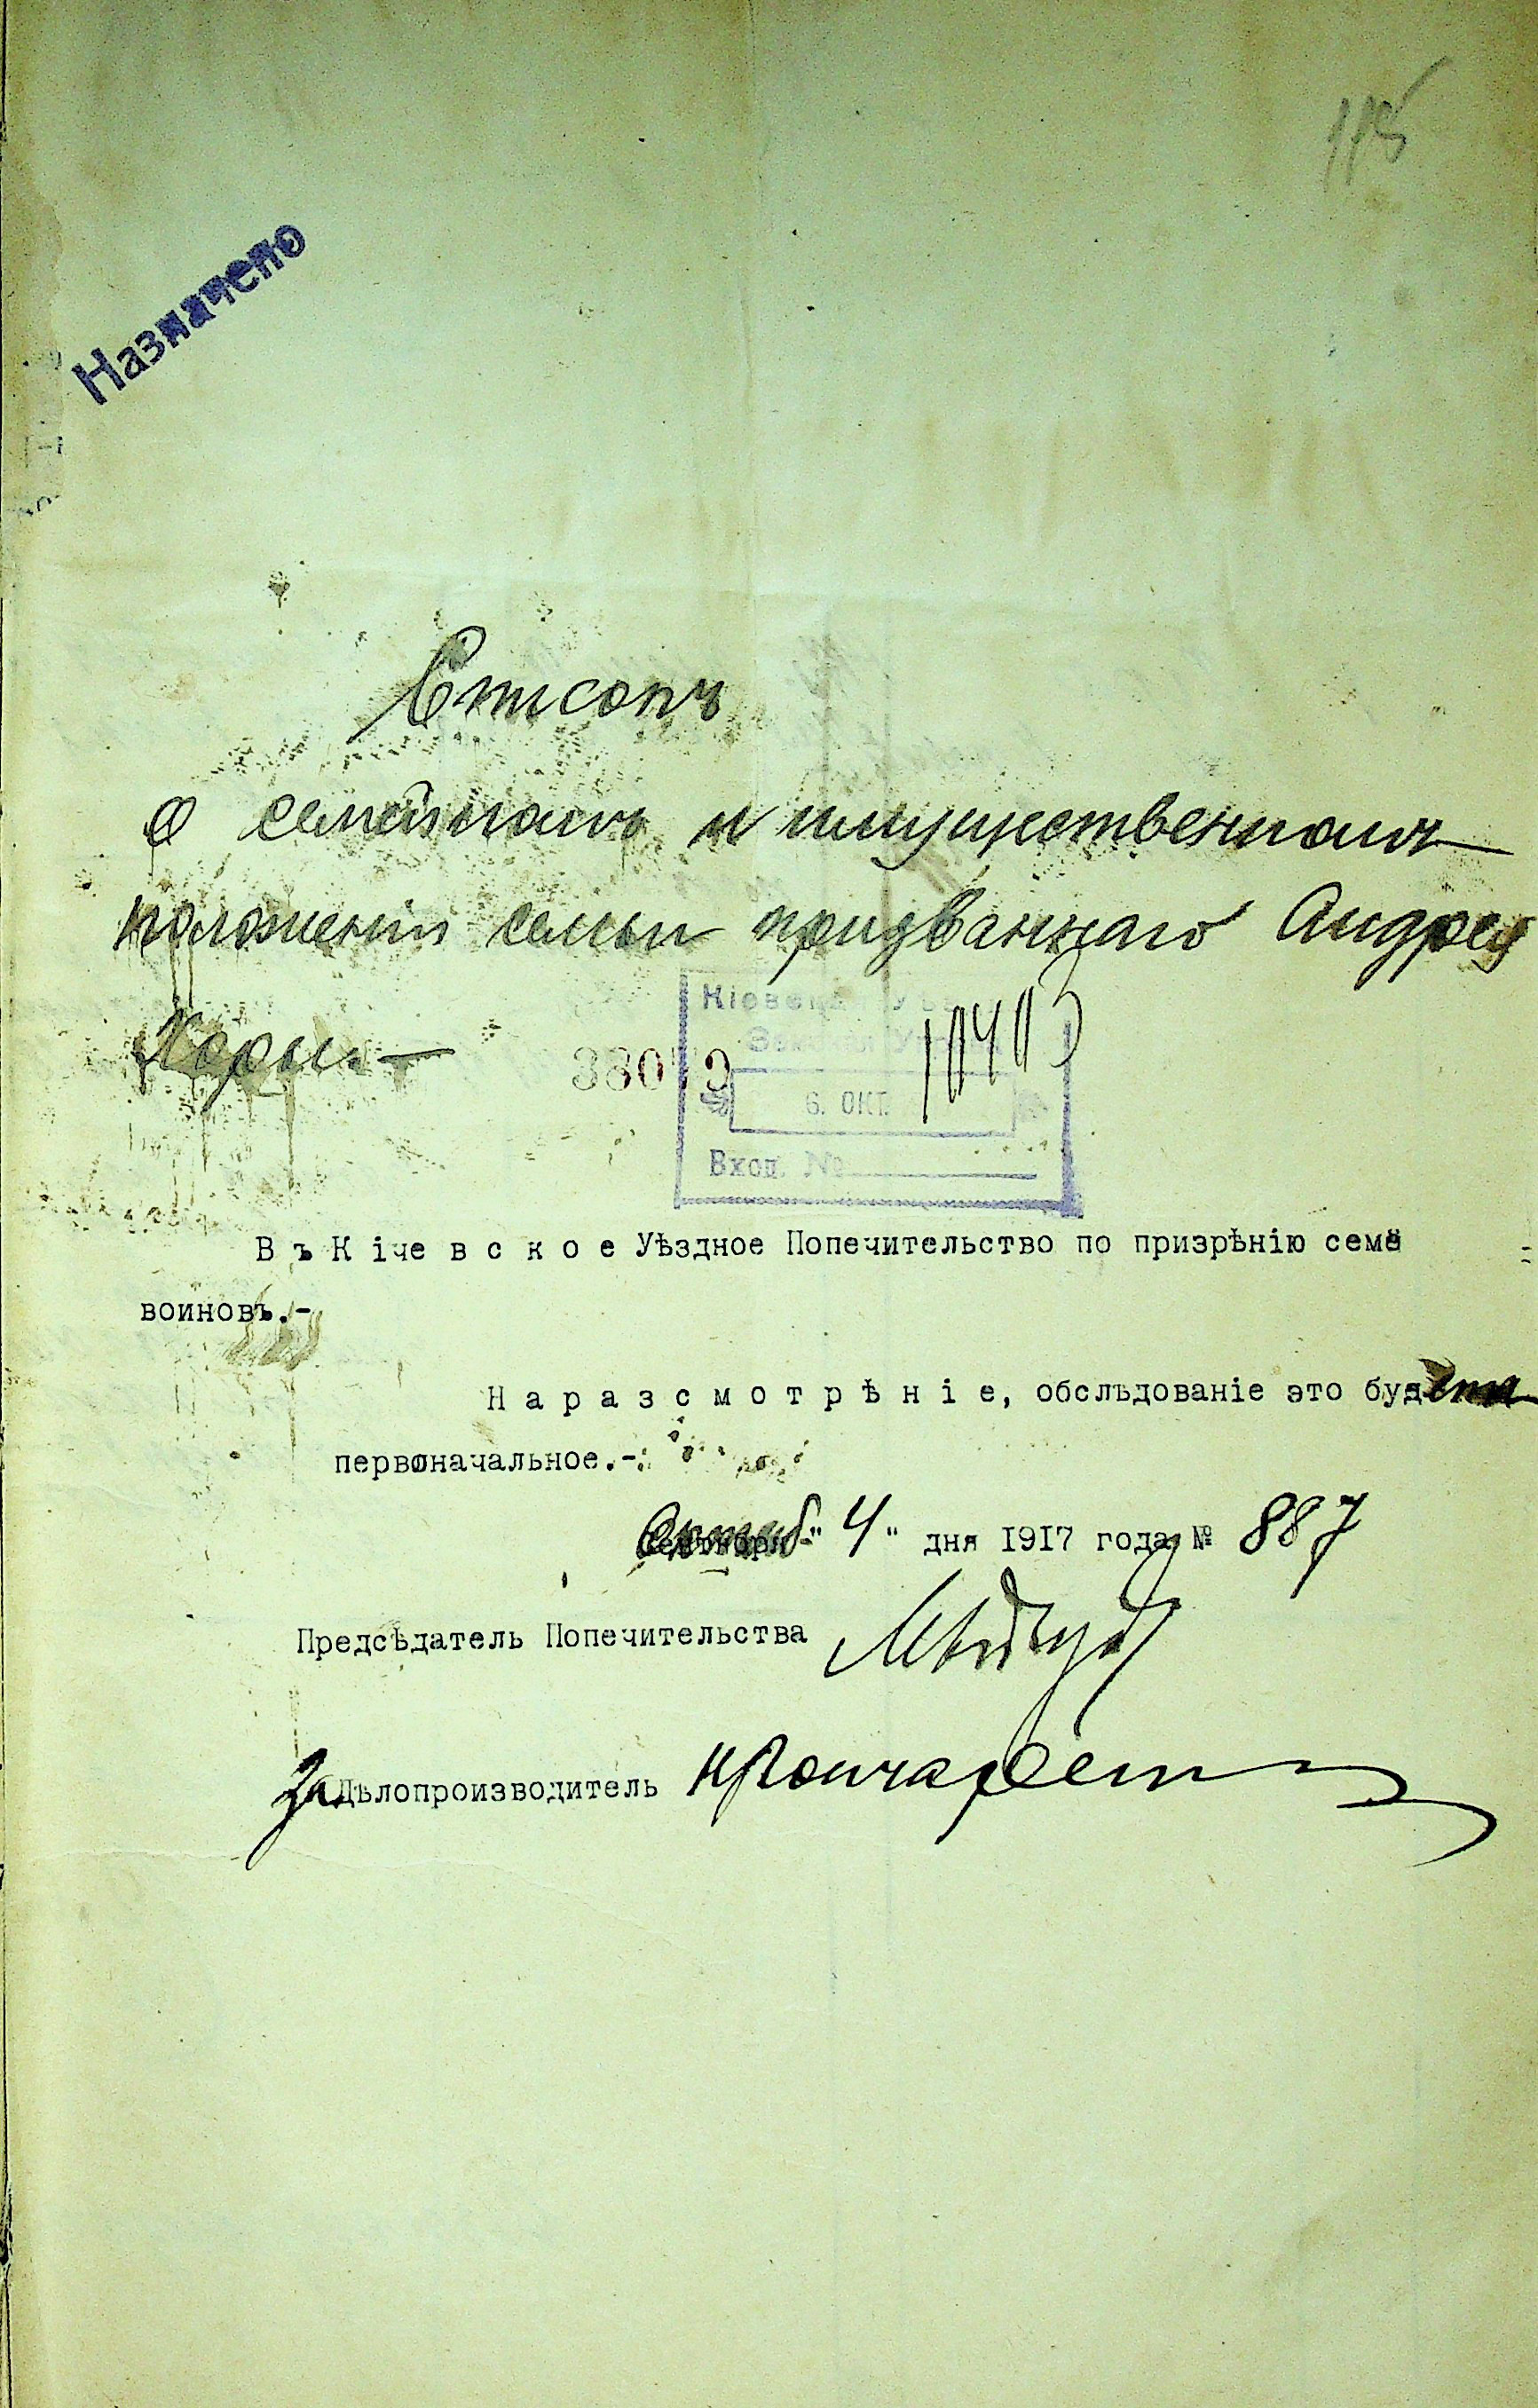 115
Назначено
Списокъ
о семейномъ и имущественномъ
положеніи семьи призваннаго Андрея
38079
Кіевская Уѣзд
Земская Уп
6. ОКТ.
Вход. №
Въ Кіевское Уѣздное Попечительство по призрѣнію семей
воиновъ.-
На разсмотрѣніе, обслѣдованіе это будетъ
первоначальное.-
Октяб "4" дня 1917 года № 887
Предсѣдатель Попечительства
За Дѣлопроизводитель